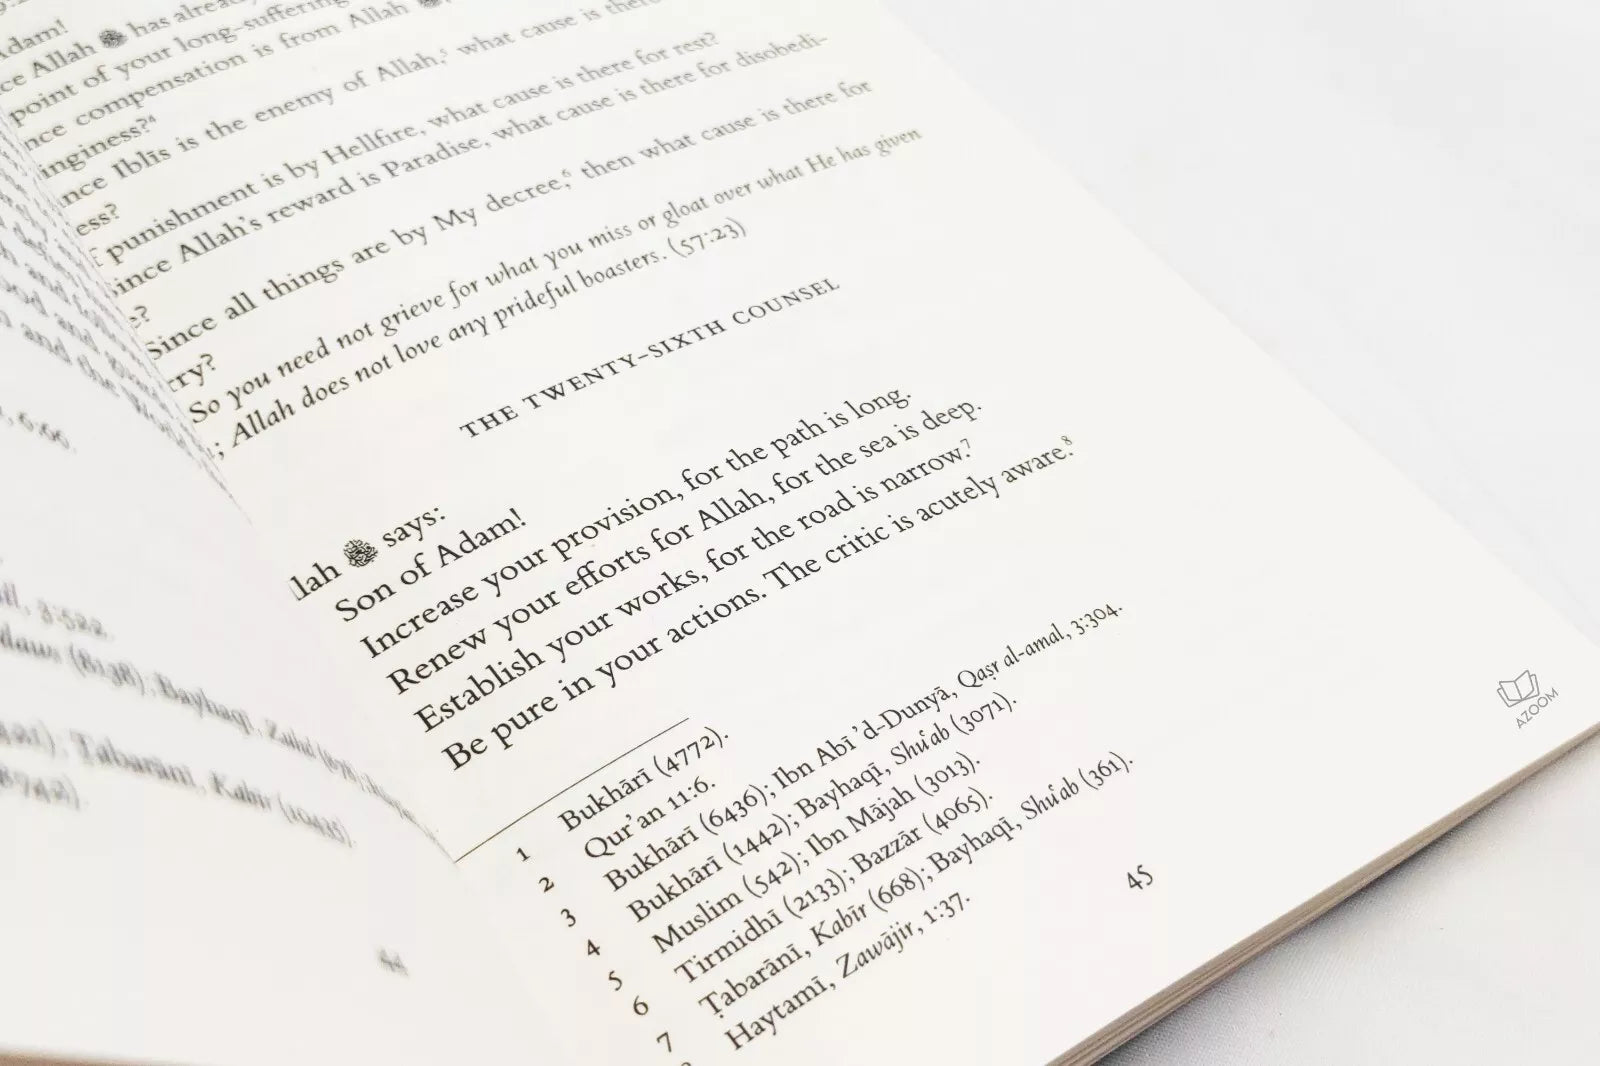 Adam!
ce Allah ﷻ has already
point of your long-suffering
nce compensation is from Allah
inginess?⁴
nce Iblīs is the enemy of Allah,⁵ what cause is there
ess?
f punishment is by Hellfire, what cause is there for rest?
Since Allah's reward is Paradise, what cause is there for disobedi-
e?
Since all things are by My decree,⁶ then what cause is there for
rry?
So you need not grieve for what you miss or gloat over what He has given
; Allah does not love any prideful boasters. (57:23)
THE TWENTY-SIXTH COUNSEL
llah ﷻ says:
Son of Adam!
Increase your provision, for the path is long.
Renew your efforts for Allah, for the sea is deep.
Establish your works, for the road is narrow.⁷
Be pure in your actions. The critic is acutely aware.⁸
1 Bukhārī (4772).
2 Qur'an 11:6.
3 Bukhārī (6436); Ibn Abī 'd-Dunyā, Qaṣr al-amal, 3:304.
4 Bukhārī (1442); Bayhaqī, Shuʿab (3071).
5 Muslim (542); Ibn Mājah (3013).
6 Tirmidhī (2133); Bazzār (4065).
7 Ṭabarānī, Kabīr (668); Bayhaqī, Shuʿab (361).
Haytamī, Zawājir, 1:37.
45
, 6:66.
, 3:522.
(8138); Bayhaqī, Zuhd
Ṭabarānī, Kabīr (10435).
44
AZOOM